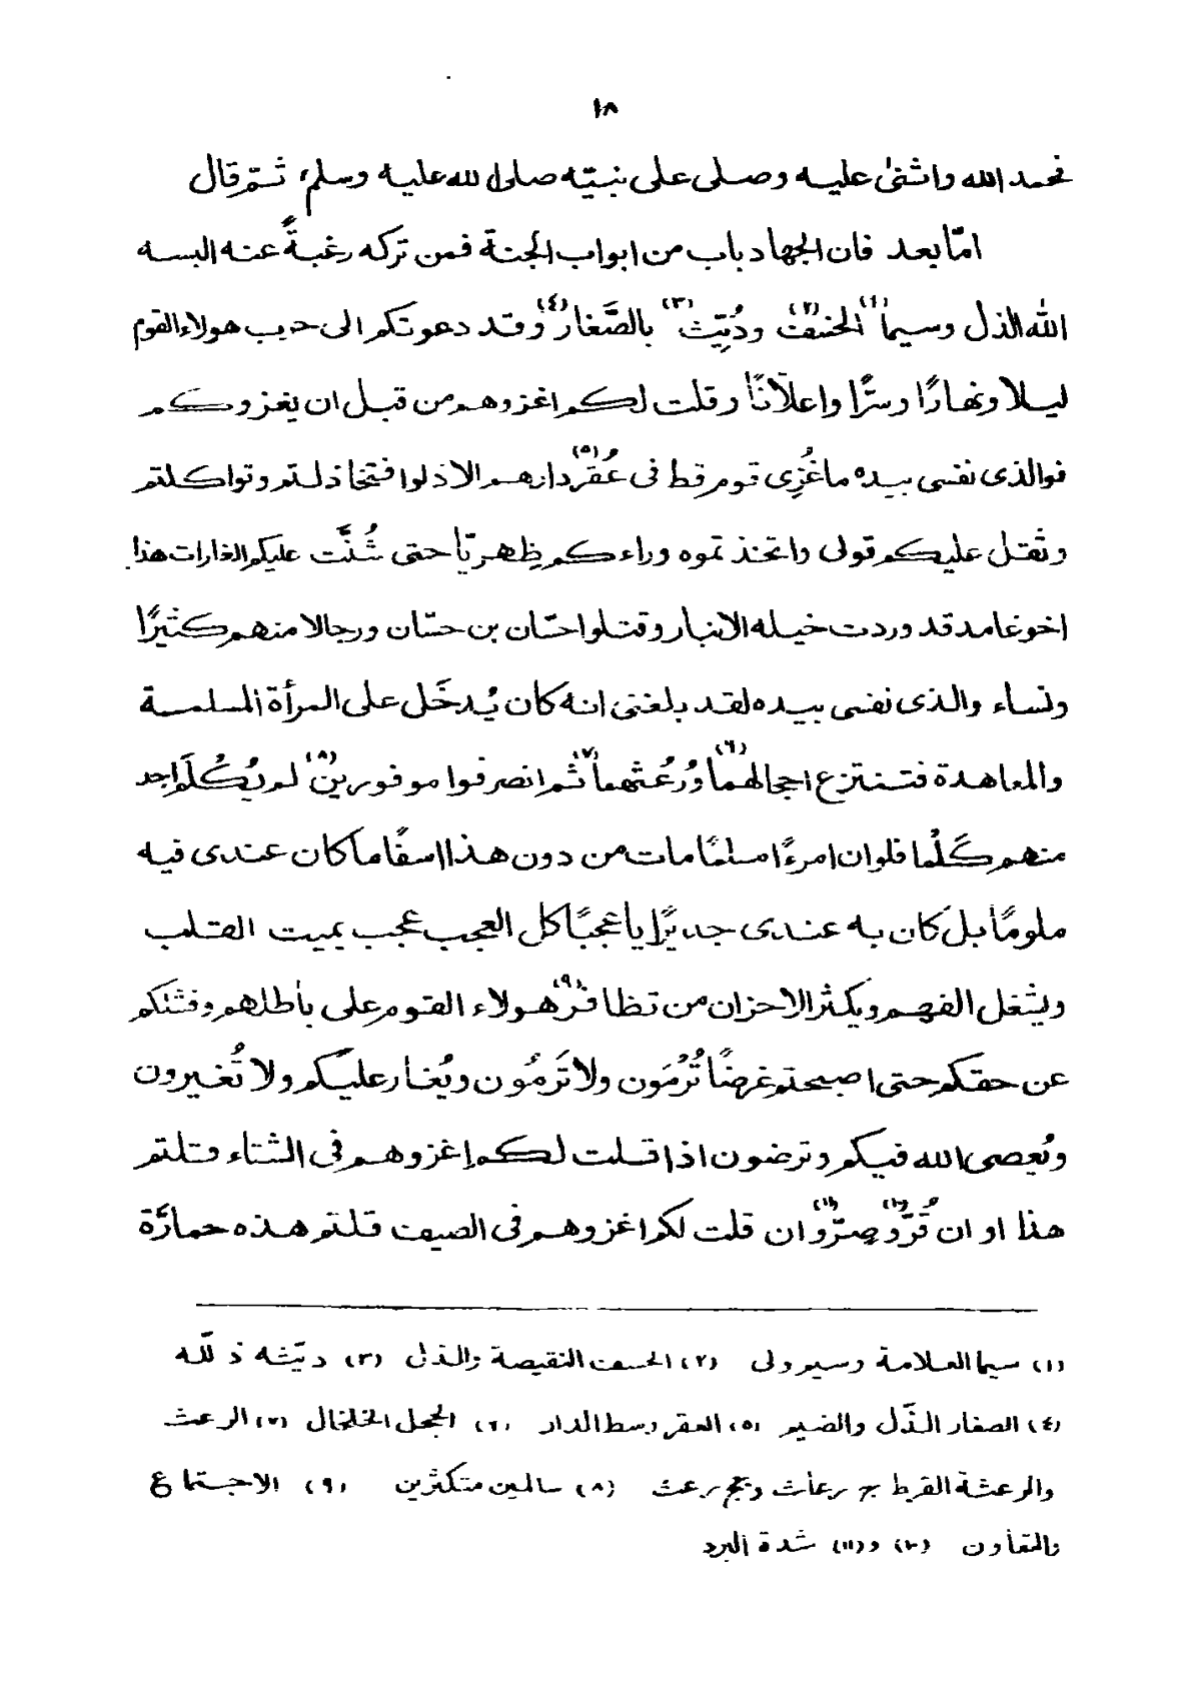 ١٨
فحمد الله واثنىٰ عليه وصلى على نبيّه صلى الله عليه وسلم، ثمّ قال
امّا بعد فان الجهاد باب من ابواب الجنة فمن تركه رغبةً عنه البسه
الله الذل وسيما(١) الخسف(٢) ودُيِّث(٣) بالصَّغار(٤) وقد دعوتكم الى حرب هولاء القوم
ليلا ونهارًا وسرًّا واعلانًا وقلت لكم اغزوهم من قبل ان يغزوكم
فوالذى نفسى بيده ما غُزِى قوم قط فى عُقر(٥) دارهم الا ذلوا فتخاذلتم وتواكلتم
وثقل عليكم قولى واتخذتموه وراءكم ظِهريّا حتى شُنَّت عليكم الغارات هذا
اخو غامد قد وردت خيله الانبار وقتلوا حسّان بن حسّان ورجالا منهم كثيرًا
ونساء والذى نفسى بيده لقد بلغنى انه كان يُدخَل على المرأة المسلمة
والمعاهدة فتنتزع احجالهما(٦) ورُعُثهما(٧) ثم انصرفوا موفورين(٨) لم يُكْلَم احد
منهم كَلْما فلو ان امرءًا مسلمًا مات من دون هذا اسفًا ما كان عندى فيه
ملومًا بل كان به عندى جديرًا يا عجبًا كل العجب عجب يميت القلب
ويشغل الفهم ويكثر الاحزان من تظافر(٩) هولاء القوم على باطلهم وفشلكم
عن حقكم حتى اصبحتم غرضًا تُرْمَون ولا تَرمُون ويُغار عليكم ولا تُغيرون
ويُعصى الله فيكم وترضون اذا قلت لكم اغزوهم فى الشتاء قلتم
هذا اوان قُرّ(١٠) وصِرّ(١١) وان قلت لكم اغزوهم فى الصيف قلتم هذه حمارَّة
(١) سيما العلامة وسيم ولى (٢) الخسف النقيصة والذل (٣) ديّثه ذلّله
(٤) الصغار الذّل والضيم (٥) العقر وسط الدار (٦) الحجل الخلخال (٧) الرعث
والرعثة القرط ج رعاث وجج رعث (٨) سالمين متكثرين (٩) الاجتماع
والتعاون (١٠) و(١١) شدة البرد